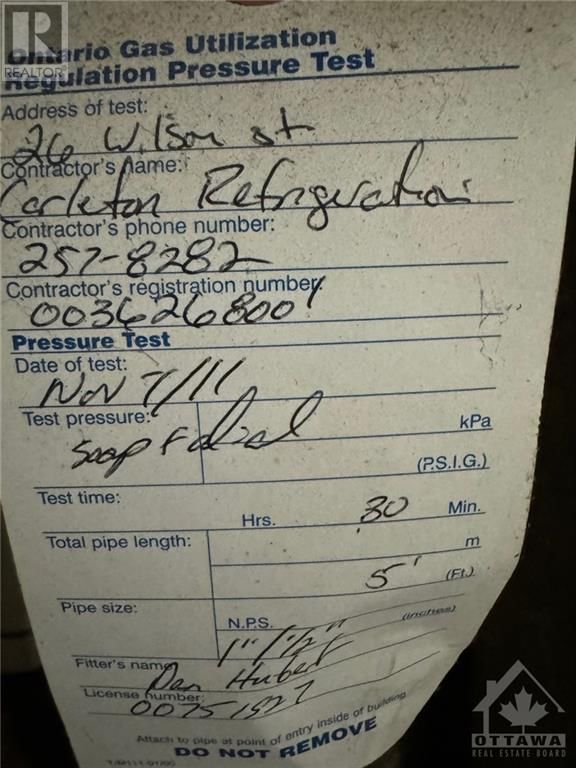 Ontario Gas Utilization
Regulation Pressure Test
REALTOR®
Address of test:
26 Wilson st
Contractor's name:
Carleton Refrigeration
Contractor's phone number:
257-8282
Contractor's registration number:
0036268001
Pressure Test
Date of test:
Nov 7/11
Test pressure:
kPa
Soap + dial
(P.S.I.G.)
Test time:
Hrs. 30 Min.
Total pipe length:
m
5' (Ft.)
Pipe size:
N.P.S.
(inches)
1" 1/2"
Fitter's name
Dan Hubert
License number:
00751927
Attach to pipe at point of entry inside of building
DO NOT REMOVE
OTTAWA
REAL ESTATE BOARD